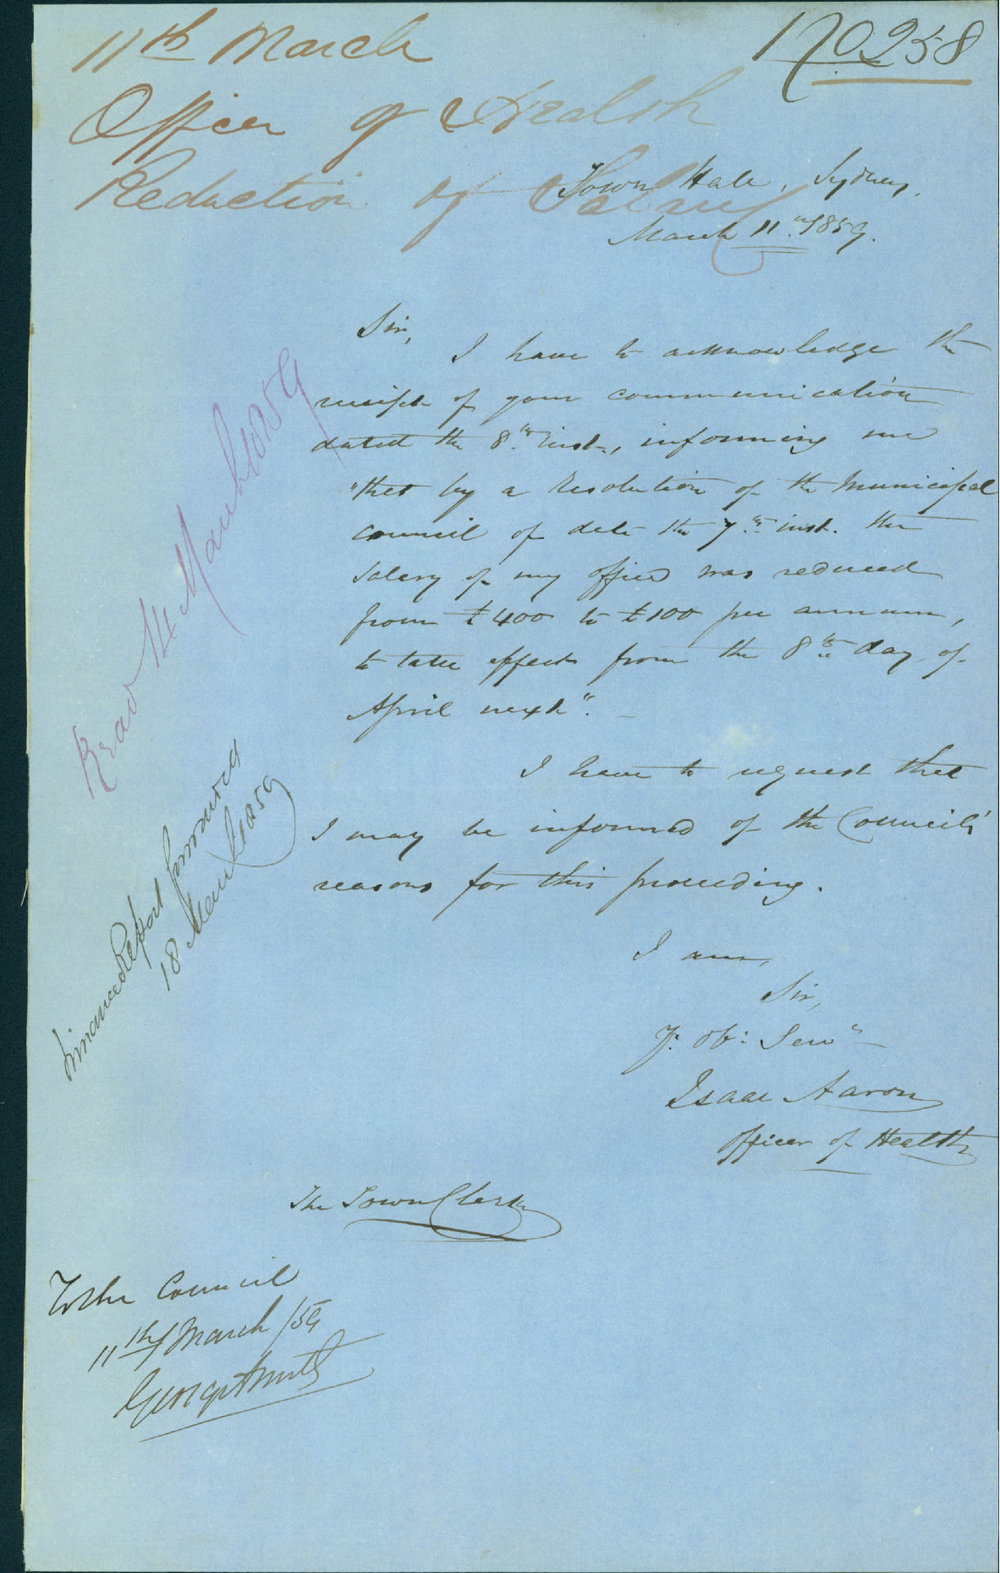 11th March
No 258
Officer of Health
Reduction of Salary
Town Hall, Sydney,
March 11th 1859.
Sir,
I have to acknowledge the
receipt of your communication
dated the 8th inst., informing me
"that by a Resolution of the Municipal
Council of date the 7th inst. the
salary of my office was reduced
from £400 to £100 per annum,
to take effect from the 8th day of
April next". –
I have to request that
I may be informed of the Council's
reasons for this proceeding.
I am,
Sir,
Yr. Obt. Servt
Isaac Aaron
Officer of Health
The Town Clerk
To the Council
11th March /59
George Smith
Read 14 March 1859
Finance Report
18 March 1859